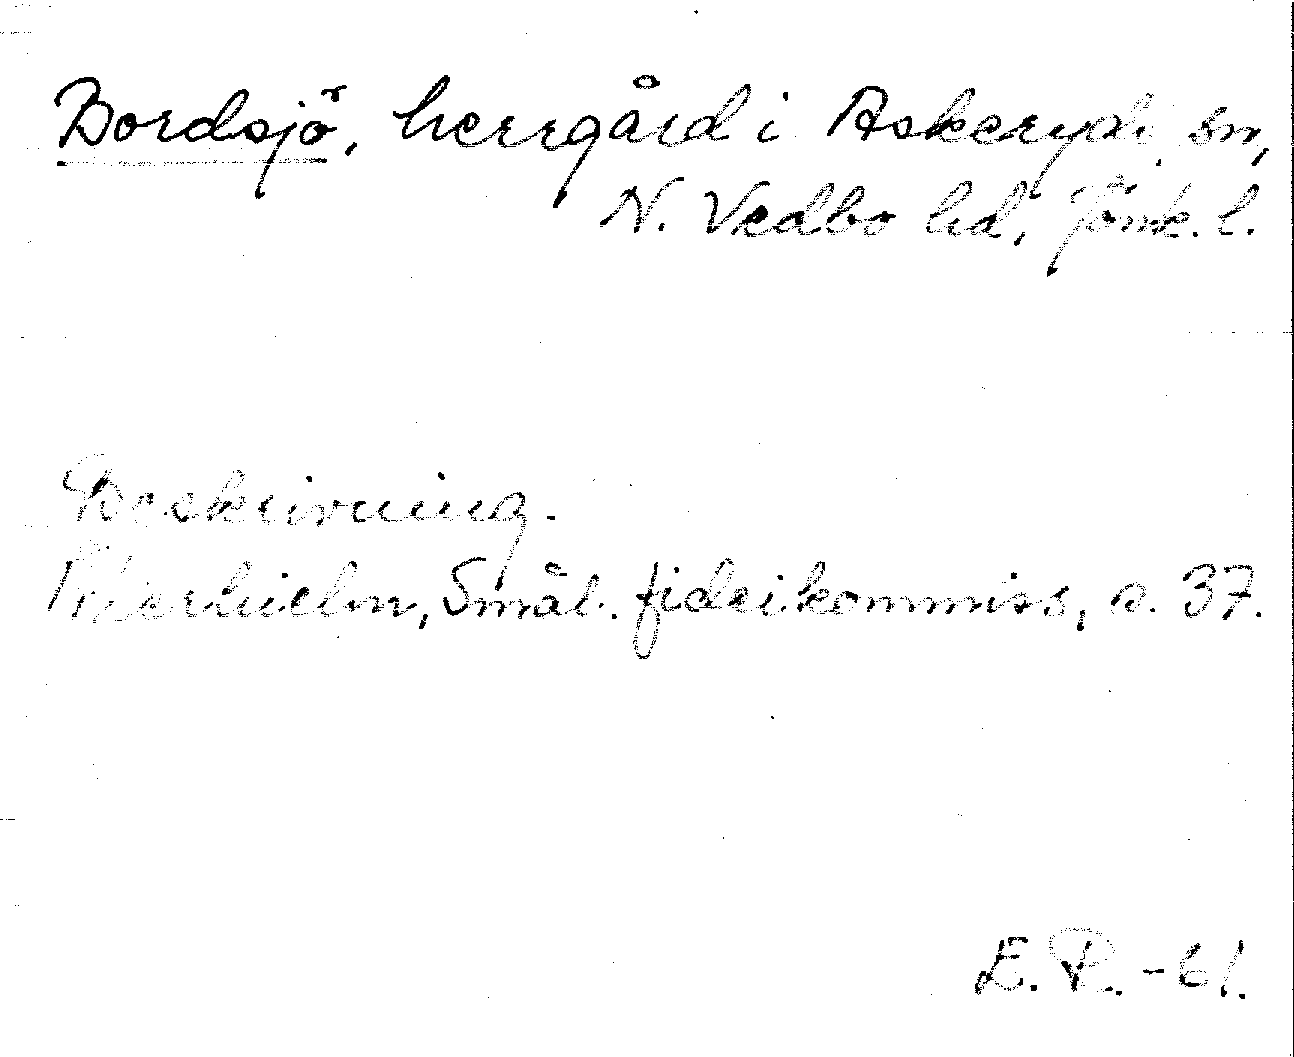 Bordsjö, herrgård i Askeryds sn,
N. Vedbo hd, Jönk. l.
Beskrivning.
Smål. fideikommiss, s. 37.
E. P. -61.